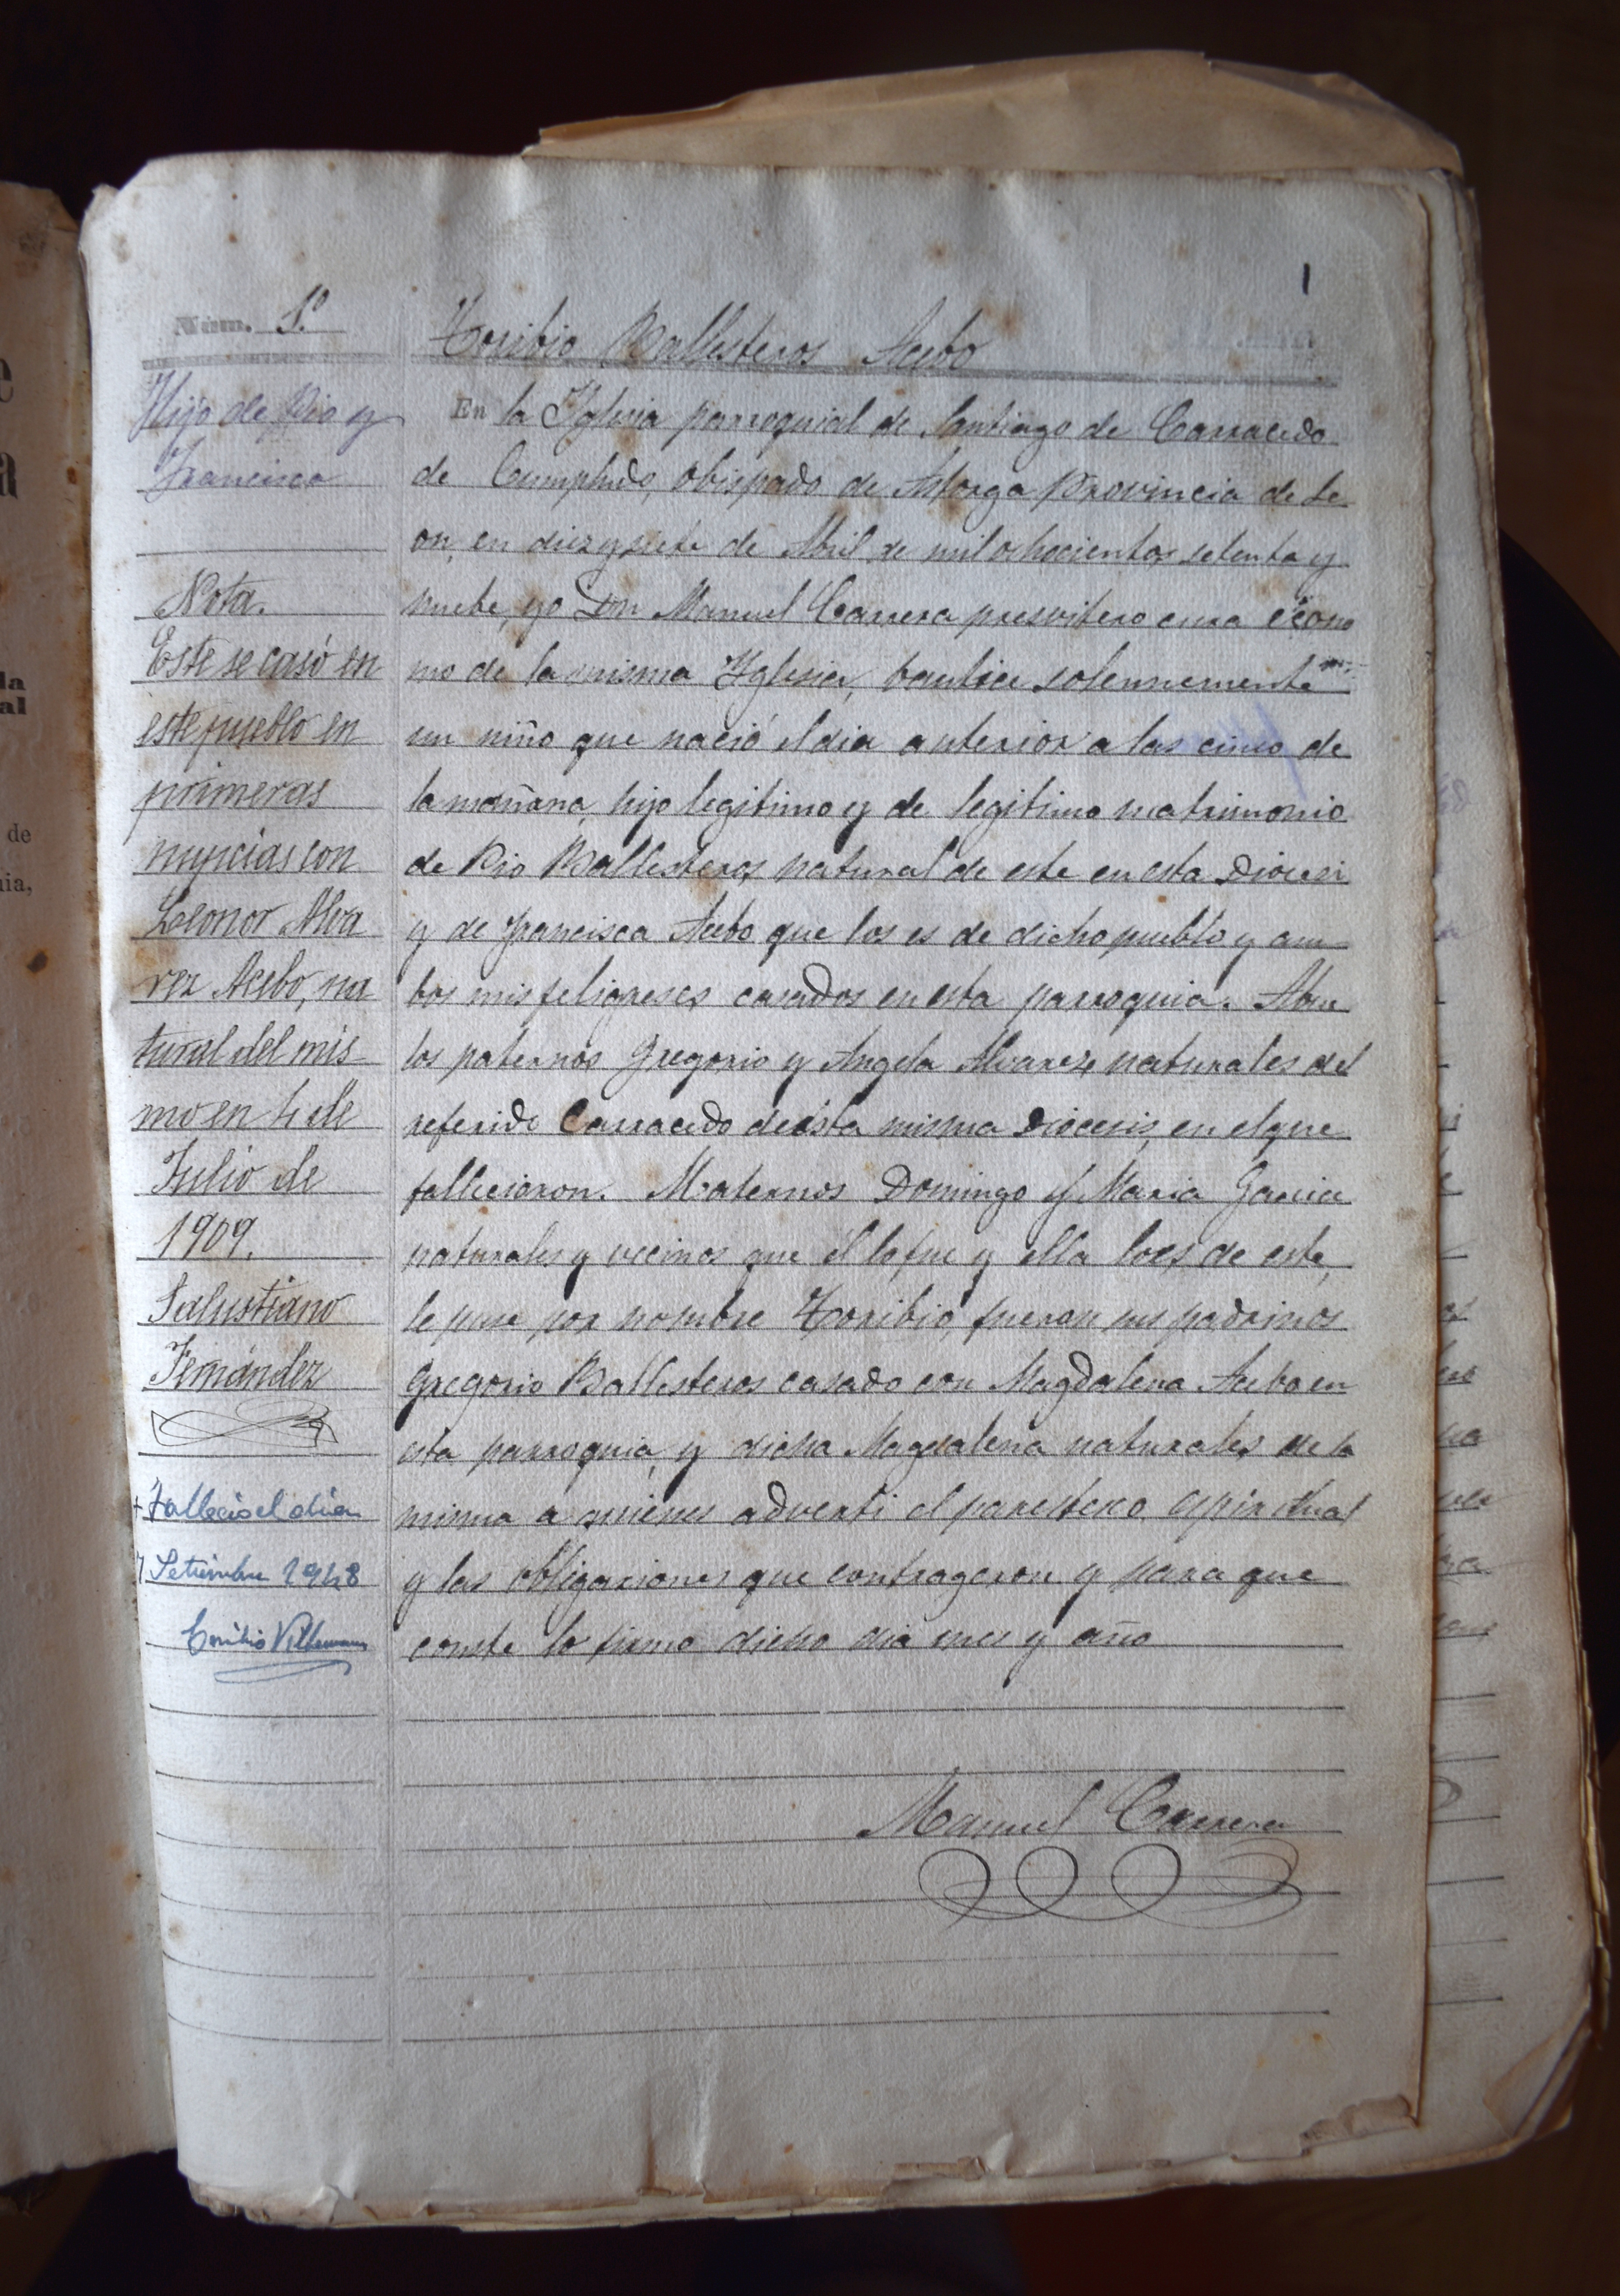 1
Núm. 1º
Toribio Ballesteros Acebo
Hijo de Pio y
Francisca
Nota.
Este se casó en
este pueblo en
primeras
nupcias con
Leonor Alva
rez Acebo, na
tural del mis-
mo en 4 de
Julio de
1909.
Salustiano
Fernández
+ Fallecio el dia
7 Setiembre 1948
En la Yglesia parroquial de Santiago de Carracedo
de Compludo, Obispado de Astorga Provincia de Le
on, en diez y siete de Abril de mil ochocientos setenta y
nuebe, yo Don Manuel Carrera presvitero cura écono
mo de la misma Yglesia, bautice solennemente
un niño que nació el dia anterior a las cinco de
la mañana, hijo legitimo y de legitimo matrimonio
de Pio Ballesteros natural de este en esta Diocesi
y de Francisca Acebo que los es de dicho pueblo y am
bos mis feligreses casados en esta parroquia. Abue
los paternos Gregorio y Angela Alvarez, naturales del
referido Carracedo de ésta misma Diocesis, en el que
fallecieron. Maternos Domingo y Maria Garcia
naturales y vecinos que él lo fue y ella lo es de este,
le puse por nombre Toribio, fueron sus padrinos
Gregorio Ballesteros casado con Magdalena Acebo en
esta parroquia, y dicha Magdalena naturales de la
misma a quienes adverti el parentesco espiritual
y las obligaciones que contrageron y para que
conste lo firmo dicho dia mes y año
Manuel Carrera
de
la
al